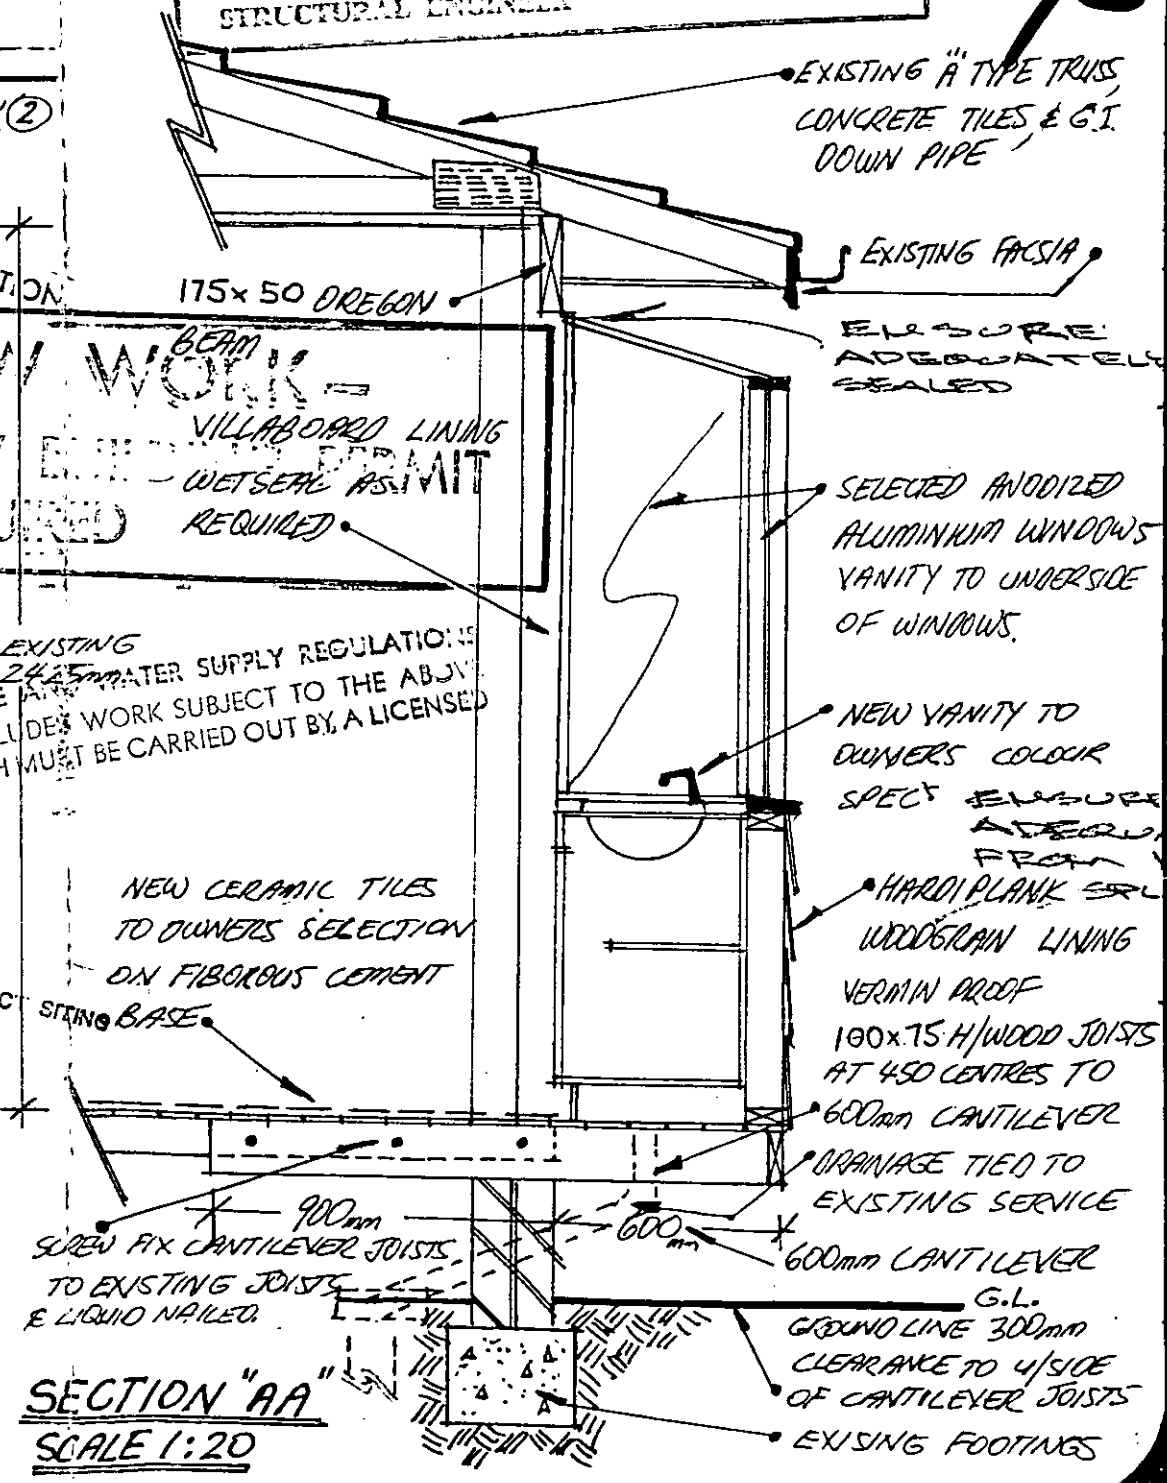 STRUCTURAL ENGINEER
EXISTING "A" TYPE TRUSS,
CONCRETE TILES, & G.I.
DOWN PIPE
2
EXISTING FACSIA
175x50 OREGON
BEAM
ENSURE
ADEQUATELY
SEALED
WORK -
VILLABOARD LINING
PERMIT
WETSEAL AS
REQUIRED
SELECTED ANODIZED
ALUMINIUM WINDOWS
VANITY TO UNDERSIDE
OF WINDOWS.
EXISTING
2425mm
WATER SUPPLY REGULATIONS
WORK SUBJECT TO THE ABOVE
MUST BE CARRIED OUT BY A LICENSED
NEW VANITY TO
OWNERS COLOUR
SPECS ENSURE
FROM
NEW CERAMIC TILES
TO OWNERS SELECTION
ON FIBOROUS CEMENT
BASE
SITING
HARDIPLANK
WOODGRAIN LINING
VERMIN PROOF
100x75 H/WOOD JOISTS
AT 450 CENTRES TO
600mm CANTILEVER
DRAINAGE TIED TO
EXISTING SERVICE
900mm
600mm
600mm CANTILEVER
SCREW FIX CANTILEVER JOISTS
TO EXISTING JOISTS
& LIQUID NAILED.
G.L.
GROUND LINE 300mm
CLEARANCE TO U/SIDE
OF CANTILEVER JOISTS
EXISING FOOTINGS
SECTION "AA"
SCALE 1:20